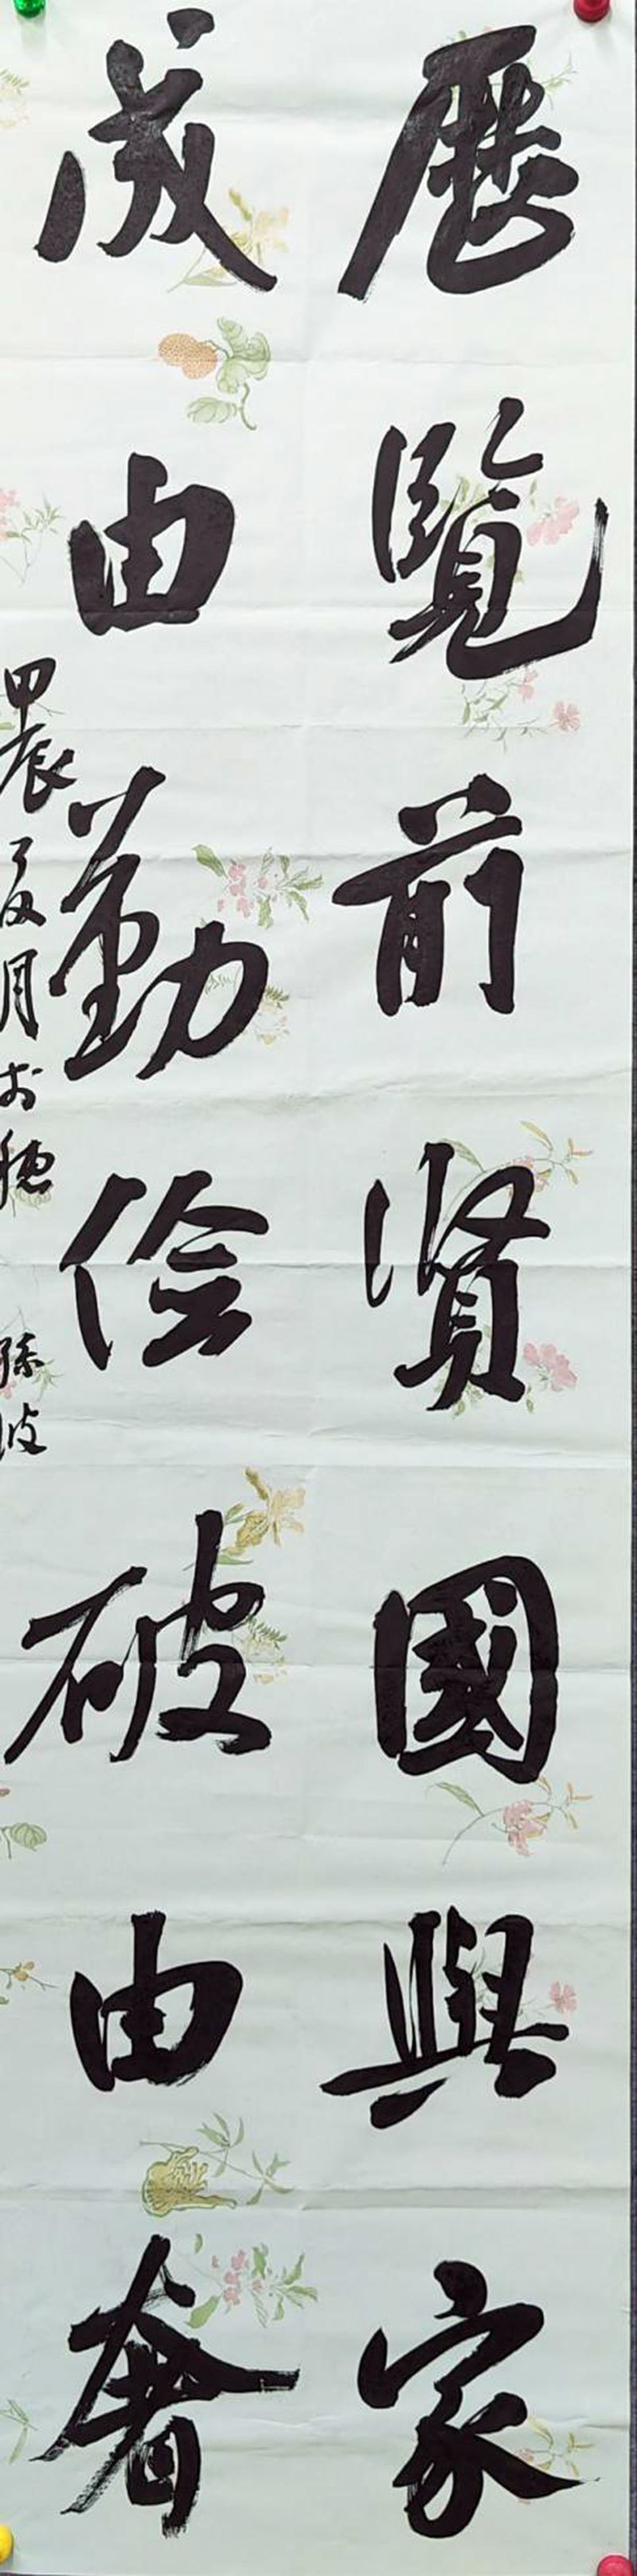 歷覽前賢國與家
成由勤儉破由奢
甲辰夏月於穗 孫波